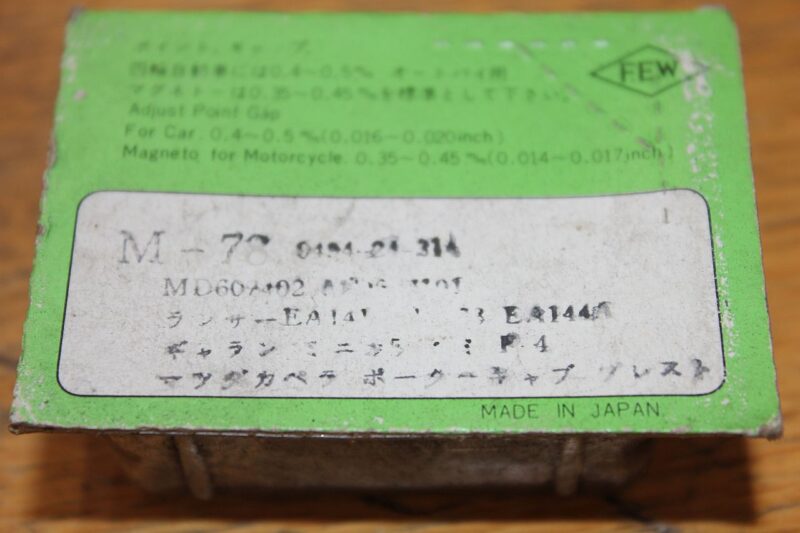 ポイント、ギャップ
四輪自動車には0.4〜0.5㎜ オートバイ用
マグネトーは0.35〜0.45㎜を標準として下さい。
FEW
Adjust Point Gap
For Car. 0.4〜0.5㎜(0.016〜0.020inch)
Magneto for Motorcycle. 0.35〜0.45㎜(0.014〜0.017inch)
M-78 0494-24-314
ランサーEA141 EA144
ギャラン ミニカ F4
マツダカペラ ポーターキャブ
MADE IN JAPAN